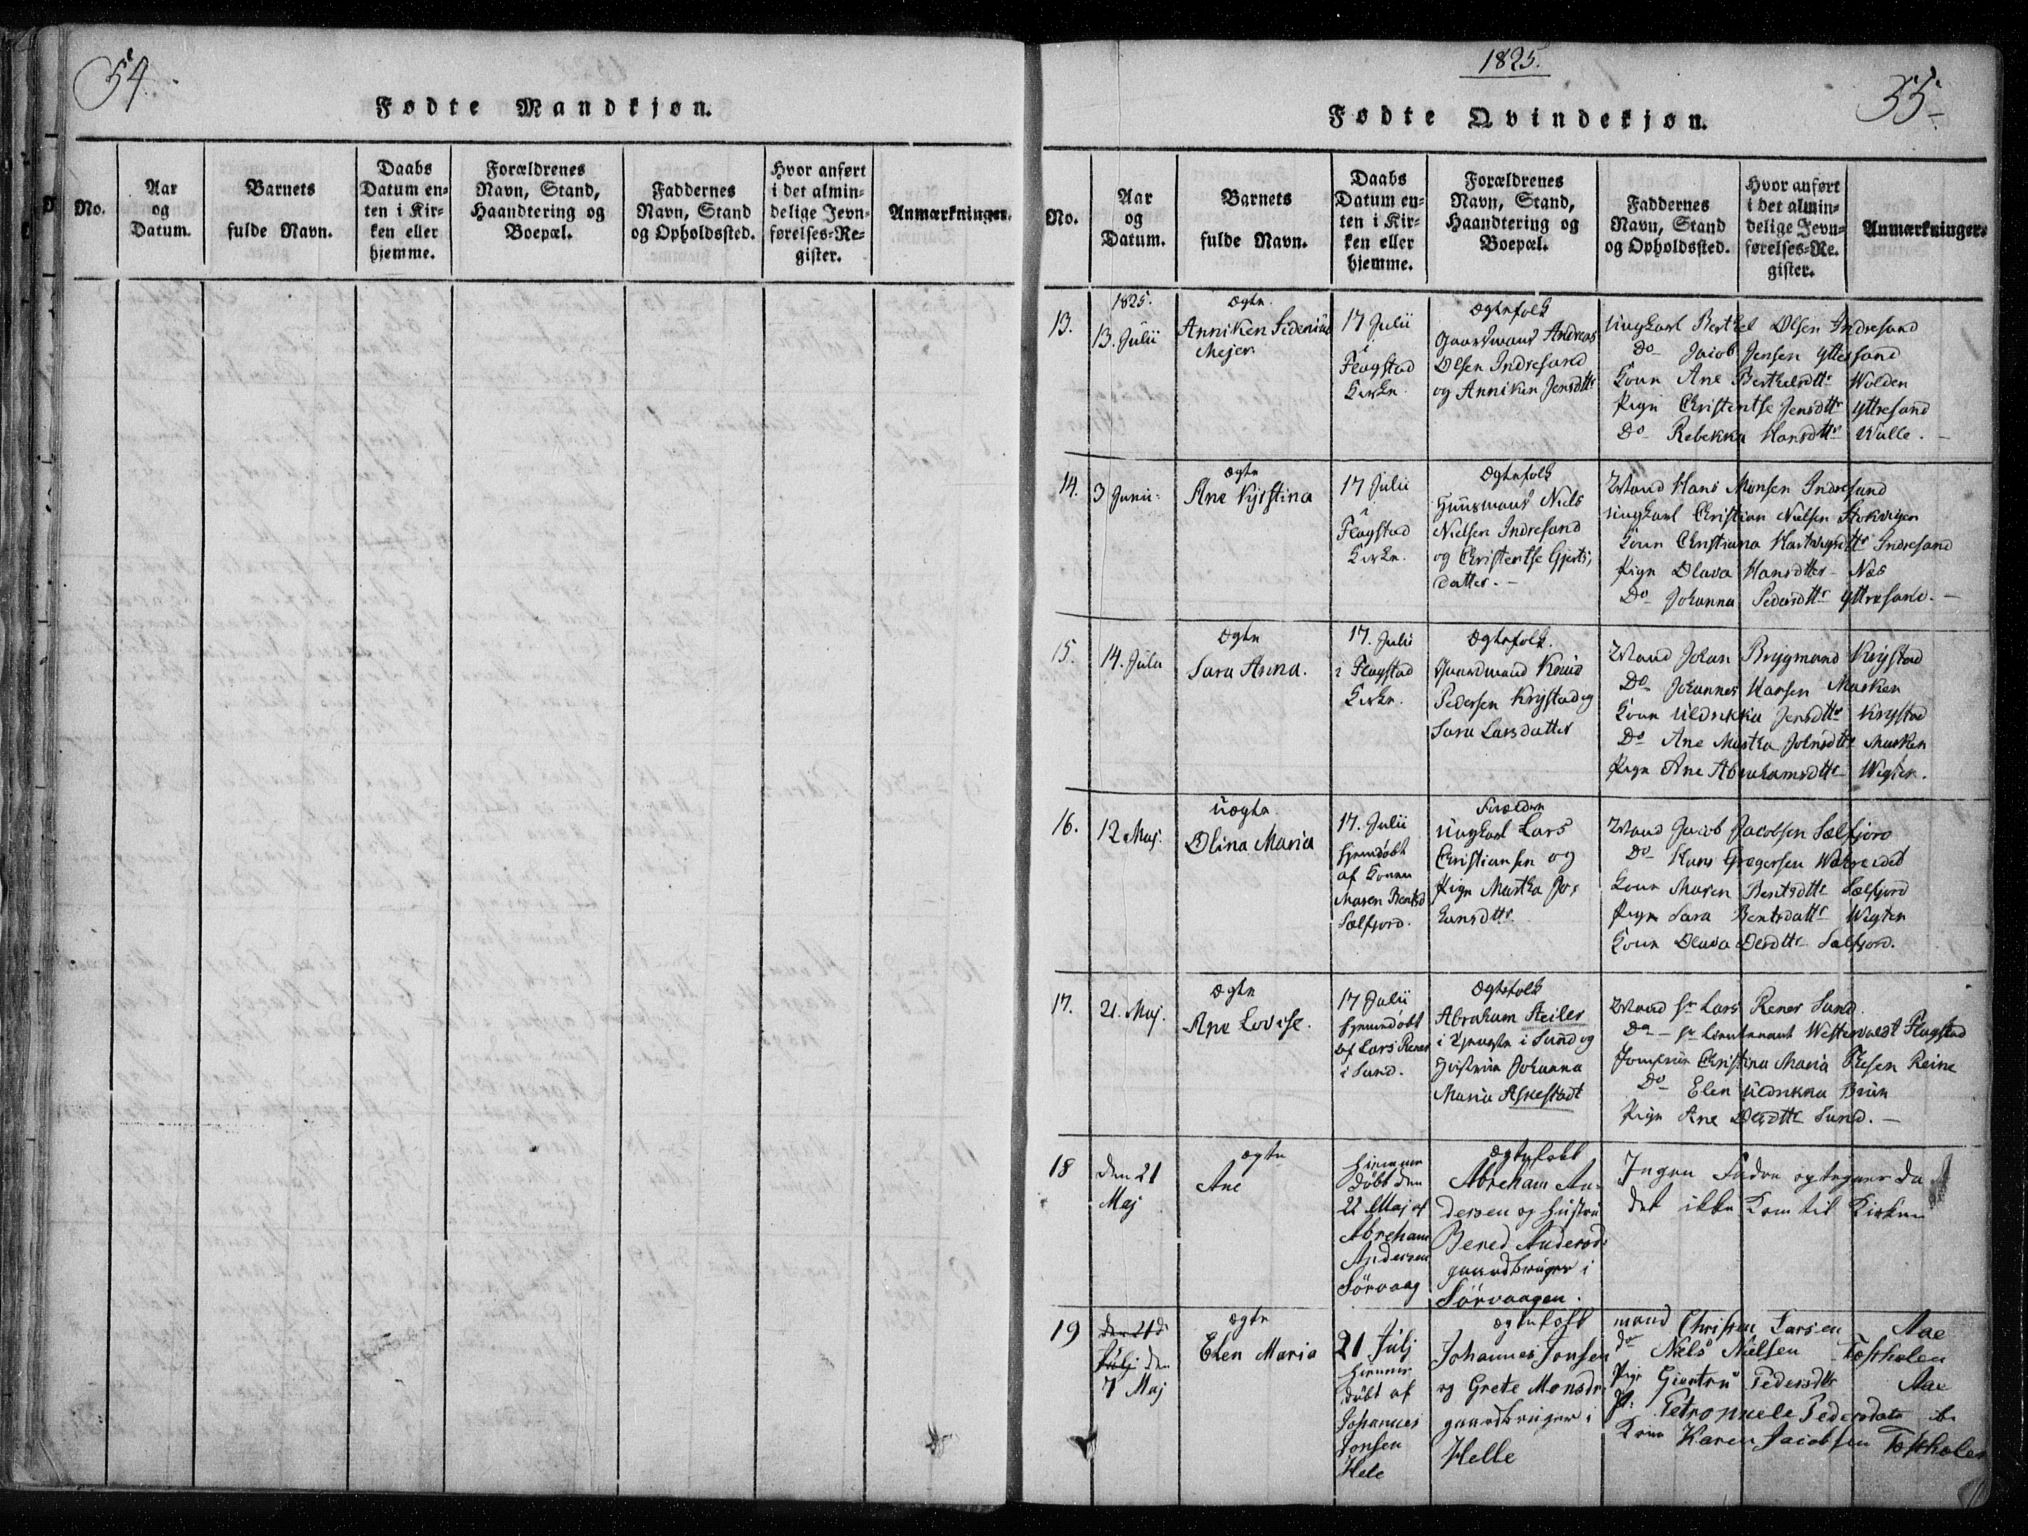 54.
Fødte Mandkjøn.
No.
Aar
og
Datum.
Barnets
fulde Navn.
Daabs
Datum en-
ten i Kir-
ken eller
hjemme.
Forældrenes
Navn, Stand,
Haandtering og
Boepæl.
Faddernes
Navn, Stand
og Opholdssted.
Hvor anført
i det almin-
delige Jevn-
førelses-Re-
gister.
Anmærkninger.
1825.
55.
Fødte Qvindekjøn.
No.
Aar
og
Datum.
Barnets
fulde Navn.
Daabs
Datum en-
ten i Kir-
ken eller
hjemme.
Forældrenes
Navn, Stand,
Haandtering og
Boepæl.
Faddernes
Navn, Stand
og Opholdssted.
Hvor anført
i det almin-
delige Jevn-
førelses-Re-
gister.
Anmærkninger.
13.
1825.
13. Julii
Ægte.
Anniken
Mejer
17 Julii
i
Flagstad
Kirke.
Ægtefolk
Gaardmand Andreas
Olsen Indresand
og Anniken Jensdttr
Ungkarl Berthel Olsen Indresand
Do Jacob Jensen Yttersand
Kone Ane Berthelsdttr Wolden
Pige Christentse Jensdttr Yttresand
Do Rebekka Hansdttr Wulle. -
14.
3 Junii.
Ægte
Ane Kjrstina
17 Julii
i
Flagstad
Kirke.
Ægtefolk
Huusmand Niels
Nielsen Indresand
og Christentse Gjerts-
datter. -
Mand Hans Monsen Indresand
Ungkarl Christian Nielsen
Kone Christiana Hartvigsdttr Indresand
Pige Olava Hansdtter Næs
Do Johanna Pedersdttr Yttresand. -
15.
14. Julii
Ægte
Sara Anna.
17. Julii
i Flagstad
Kirke.
Ægtefolk.
Gaardmand Knud
Pedersen Krystad og
Sara Larsdatter
Mand Johan Brygmand Krystad
Do Johannes Hansen Mosken
Kone Uldrikka Jensdttr Krystad
Do Ane Martha Johnsdttr Mosken
Pige Ane Abrahamsdttr Wigten.
16.
12 Maj.
Uægte
Olina Maria
17. Julii
hjemdøbt
af Konen
Maren Bentsd
Sælfjord.
Forældre
Ungkarl Lars
Christiansen og
Pige Martha Jo-
hansdttr
Mand Jacob Jacobsen Sælfjord
Do Hans Gregersen
Kone Maren Bentsdttr Sælfjord
Pige Sara Bentsdattr Wigten
Kone Olava Olsdttr Sælfjord.
17.
21. Maj.
Ægte
Ane Lovise.
17 Julii
hjemdøbt
af Lars Rener
i Sund.
Ægtefolk
Abraham Steiler
i Tjeneste i Sund og
Hustrue Johanna
Maria Agnestadt
Mand Hr Lars Rener Sund.
Do - Hr Lieutenant Westerwaldt Flagstad
Jomfrue Christina Maria Thesen Reine
Do Elen Uldrikka Brun
Pige Ane Olsdttr Sund. -
18
den 21
Maj
ægte
Ane
hiemme
døbt den
22 Maj af
Abreham
Andersen
Sørvaag
Ægtefolk
Abreham An-
dersen og hustru
Bered Andersd:
gaardbruger i
Sørvaagen.
Ingen Fadre optegnes da
det ikke Kom til Kirken
19
den 21d
Julj den
7 Maj
ægte
Elen Maria
21 Julj
hiemme
døbt af
Johannes
Jonsen
Hele
ægtefolk
Johannes Jonsen
og Grete Monsdr
gaardbruger i
Helle
mand Christen Larsen Aae
do Niels Nielsen
Pige Giertru Pedersdttr Aae
P: Petronnele Pedersdatr ib.
Kone Karen Jacobsen